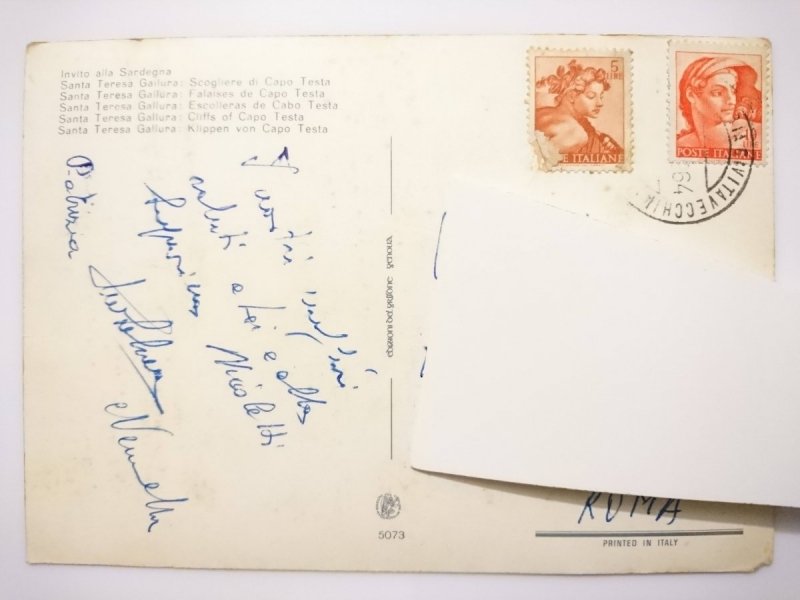 Invito alla Sardegna
Santa Teresa Gallura: Scogliere di Capo Testa
Santa Teresa Gallura: Falaises de Capo Testa
Santa Teresa Gallura: Escolleras de Cabo Testa
Santa Teresa Gallura: Cliffs of Capo Testa
Santa Teresa Gallura: Klippen von Capo Testa
I nostri migliori
saluti a lei e alla
Nicoletti
Patrizia
edizioni del grifone genova
5073
5
LIRE
E ITALIANE
POSTE ITALIANE
CIVITAVECCHIA
64
ROMA
PRINTED IN ITALY